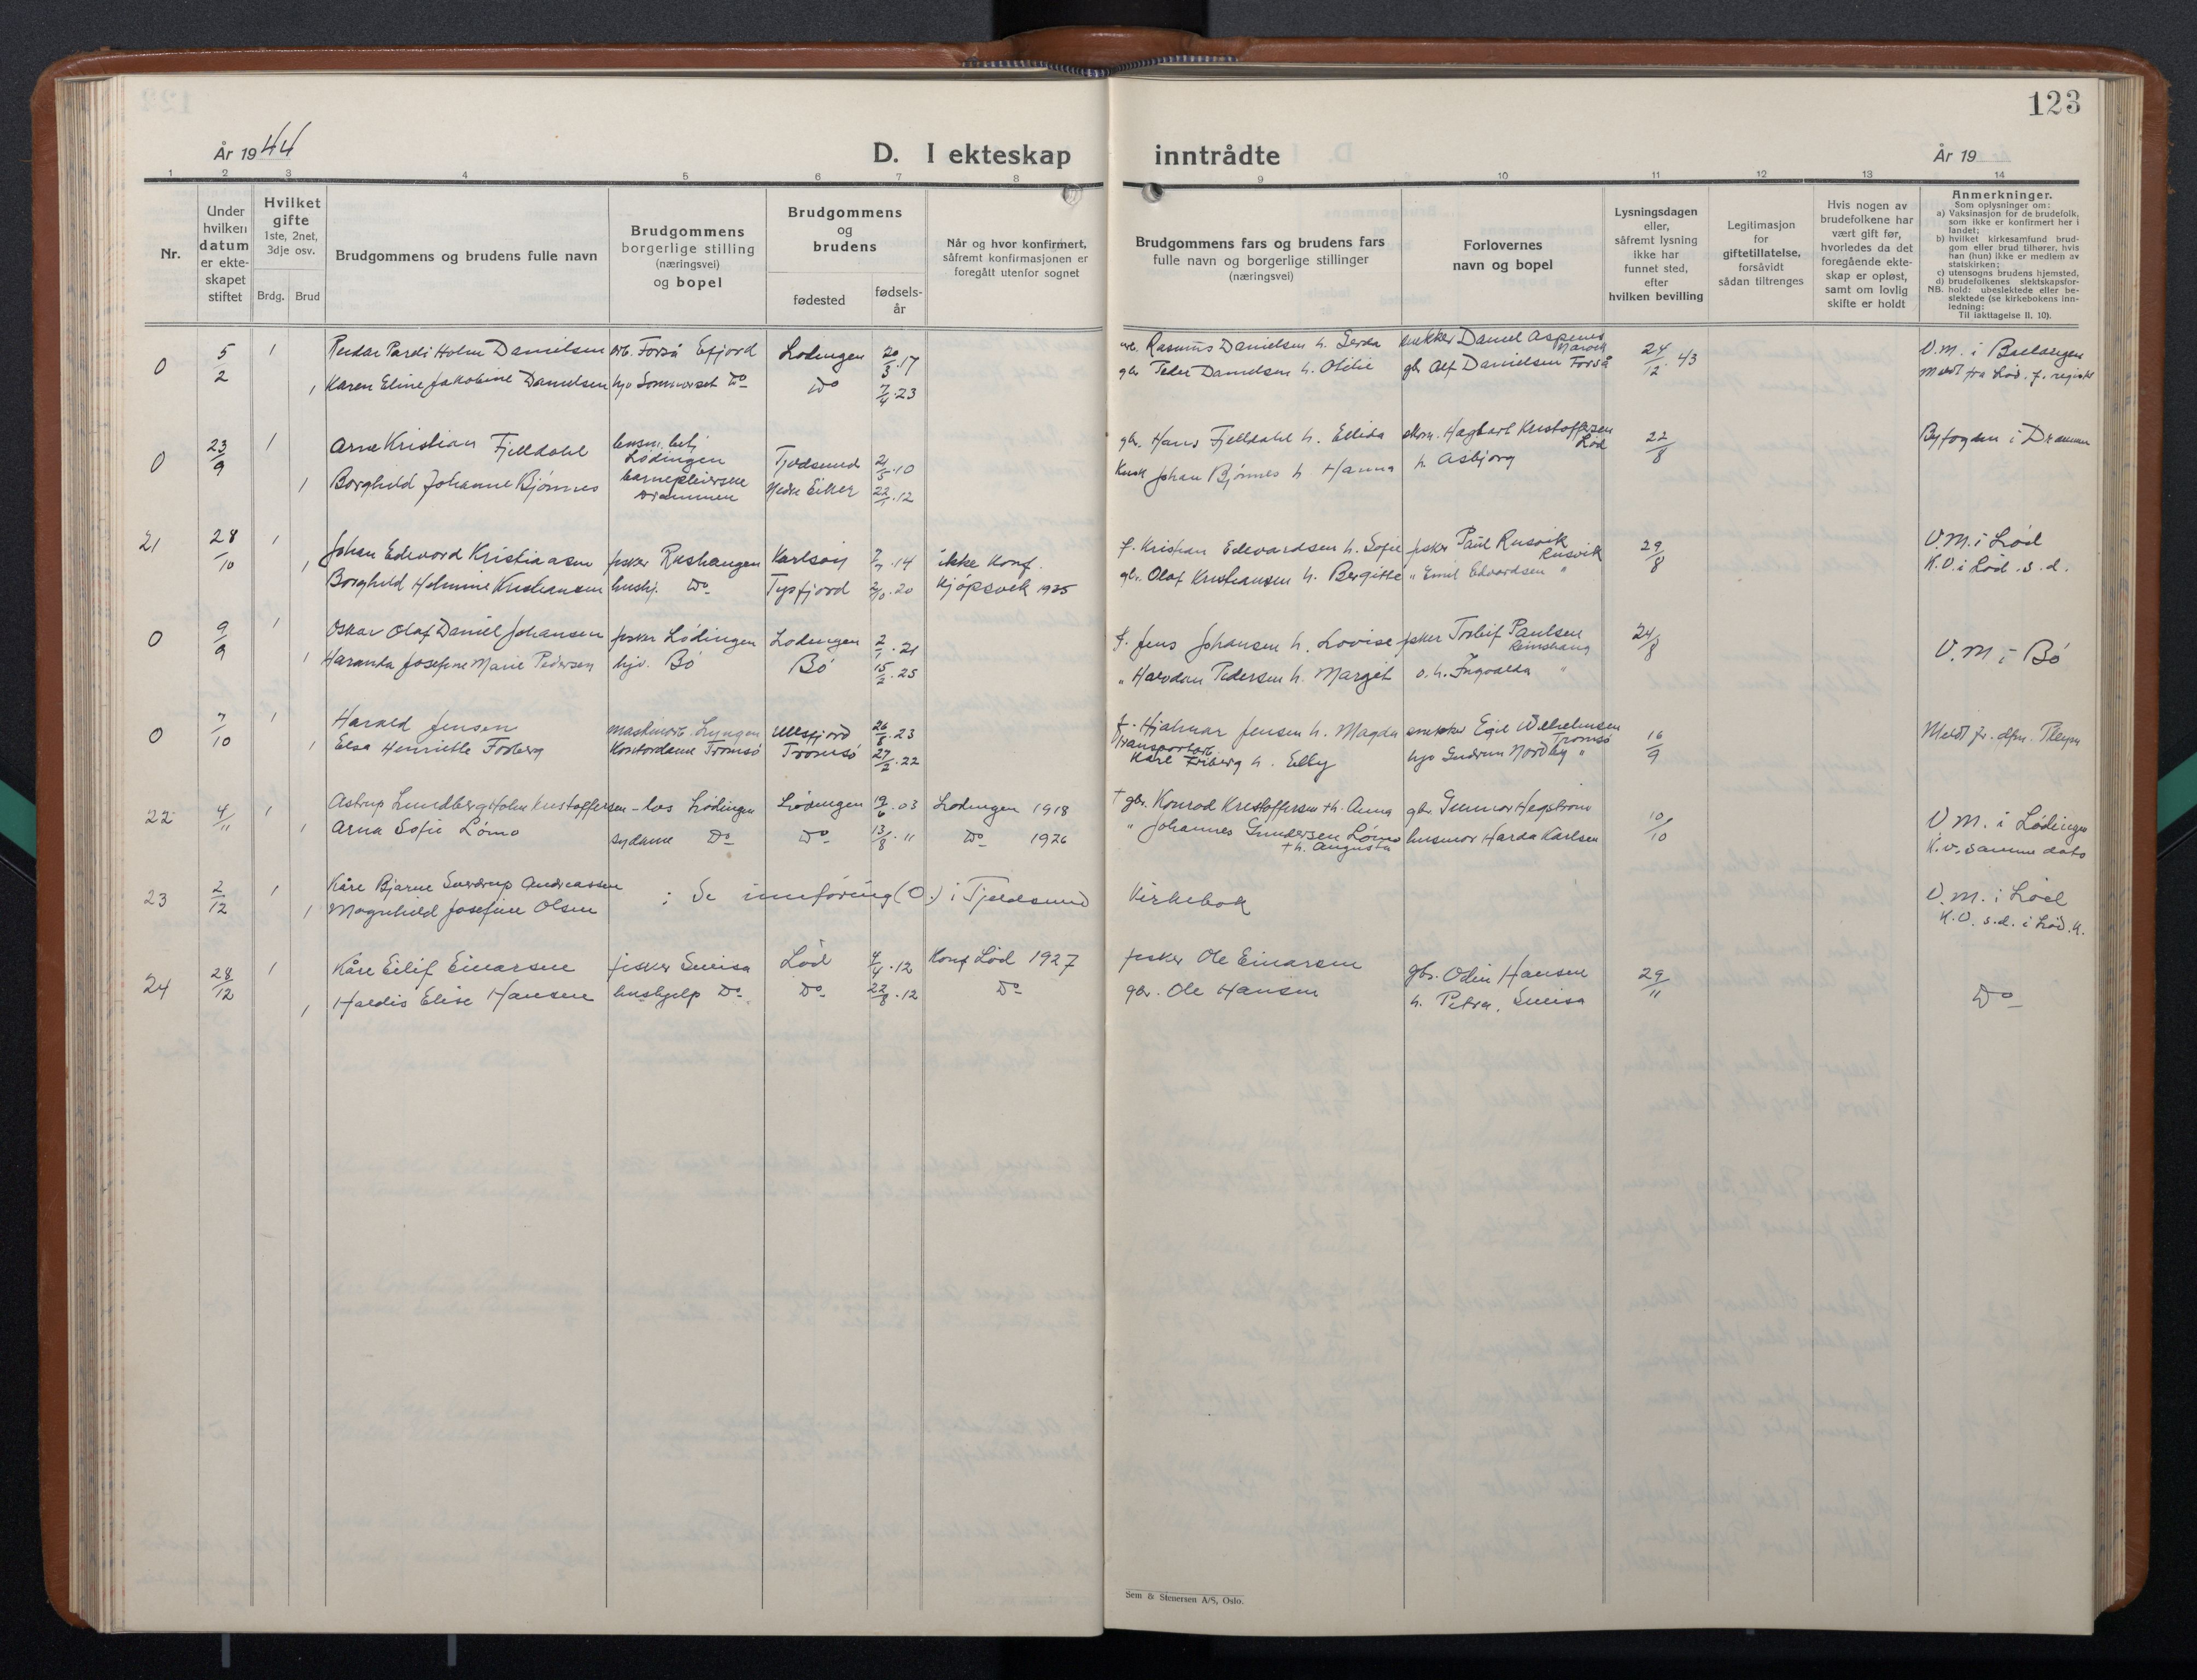 123
År 1944
D. I ekteskap inntrådte
År 19
1 2 3 4 5 6 7 8 9 10 11 12 13 14
Nr.
Under hvilken datum er ekteskapet stiftet
Hvilket gifte
1ste, 2net, 3dje osv.
Brdg. Brud
Brudgommens og brudens fulle navn
Brudgommens borgerlige stilling (næringsvei) og bopel
Brudgommens og brudens
fødested
fødselsår
Når og hvor konfirmert, såfremt konfirmasjonen er foregått utenfor sognet
Brudgommens fars og brudens fars fulle navn og borgerlige stillinger (næringsvei)
Forlovernes navn og bopel
Lysningsdagen eller, såfremt lysning ikke har funnet sted, efter hvilken bevilling
Legitimasjon for giftetillatelse, forsåvidt sådan tiltrenges
Hvis nogen av brudefolkene har vært gift før, hvorledes da det foregående ekteskap er opløst, samt om lovlig skifte er holdt
Anmerkninger.
Som oplysninger om:
a) Vaksinasjon for de brudefolk, som ikke er konfirmert her i landet;
b) hvilket kirkesamfund brudgom eller brud tilhører, hvis han (hun) ikke er medlem av statskirken;
c) utensogns brudens hjemsted,
d) brudefolkenes slektskapsforhold: ubeslektede eller beslektede (se kirkebokens innledning:
NB.
Til iakttagelse II. 10).
0 5/2 1 Holm Danielsen arb. Forså Efjord Lødingen 20/3.17 Rasmus Danielsen h. Gerda snekker Daniel Aspenes 24/12.43 V.M. i
1 Karen Eline Jakobine Danielsen hjv Sommerset Do Do 7/4.23 gbr Peder Danielsen h. Otilie gb Alf Danielsen Forså Meldt fra Lød. f.
0 23/9 1 Arne Kristian Fjelldahl lensm. betj Lødingen Tjeldsund 2/5.10 gbr. Hans Fjelldahl h. Ellida Hagbart Kristoffersen Lød 22/8 Byfogden i Drammen
1 Borghild Johanne Bjørnnes barnepleierske Drammen Nedre Eiker 22/1.12 Kusk Johan Bjørnes h Hanna h. Asbjørg
21 28/10 1 Johan Edevard Kristiansen fisker Karlsøy 14 ikke Konf. f. Kristian Edevardsen h. Sofie fisker Paul Rusvik Rusvik 29/8 V.M. i Lød
1 Borghild Kristiansen hushj. Do Tysfjord 20 Kjøpsvik 1935 gbr. Olaf Kristiansen h. Bergitte " Emil Edvardsen " K.V. i Lød. s. d.
0 9/9 1 Oskar Olaf Daniel Johansen fisker Lødingen Lødingen 2/1.21 f. Jens Johansen h. Lovise fisker Torleif Paulsen 24/8 V.M. i Bø
1 Josefine Marie Pedersen hjv. Bø Bø 15/2.25 " Halvdan Pedersen h. Margit o. h. Ingvalda "
0 7/10 1 Harald Jensen maskinarb. Lyngen Ullsfjord 26/8.23 f. Hjalmar Jensen h. Magda snekker Egil Wilhelmsen Tromsø 16/9 Meldt fr.
1 Elsa Henriette Kontordame Tromsø Tromsø 27/2.22 Transportarb. Kåre h. Elby hjv Gudrun Nordby "
22 4/11 1 Astrup Lundberg Holm Kristoffersen - los Lødingen Lødingen 19/6.03 Lødingen 1918 † gbr. Konrad Kristoffersen †h. Anna gbr. Gunnar Hegstrøm 10/10 V.M. i Lødingen
1 Arna Sofie Lømo sydame Do Do 13/8.11 Do 1926 " Johannes Gundersen Lømo †h. Augusta husmor Harda Karlsen K.V. samme dato
23 2/12 1 Kåre Bjarne Sverdrup Andreassen : Se innføring (O.) i Tjeldsund Kirkebok V.M. i Lød
1 Magnhild Josefine Olsen K.V. s.d. i Lød. K.
24 28/12 1 Kåre Eilif Einarsen fisker Sneisa Lød 4/4.12 Konf Lød 1927 fisker Ole Einarsen gbr. Odin Hansen 29/11 Do
1 Haldis Elise Hansen hushjelp Do Do 22/8.12 Do gbr. Ole Hansen h. Petra, Sneisa
Sem & Stenersen A/S, Oslo.